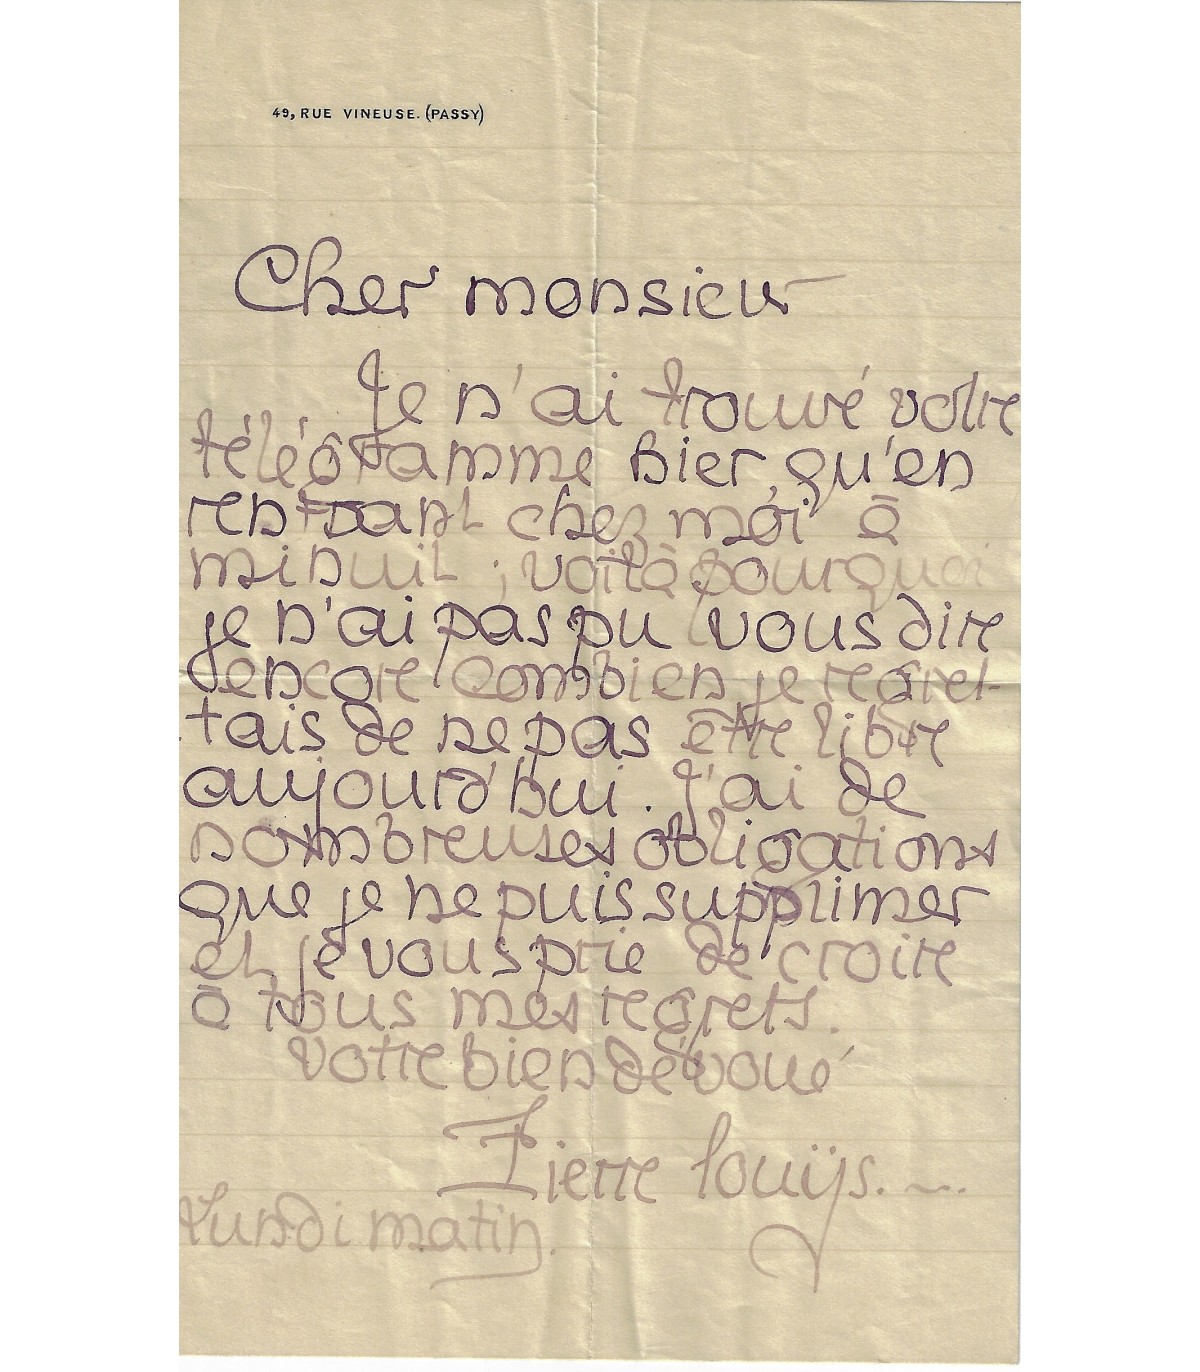 49, RUE VINEUSE. (PASSY)
Cher monsieur
Je n'ai trouvé votre
télégramme hier, qu'en
rentrant chez moi à
minuit ; voilà pourquoi
je n'ai pas pu vous dire
encore combien je regret-
tais de ne pas être libre
aujourd'hui. J'ai de
nombreuses obligations
que je ne puis supprimer
et je vous prie de croire
à tous mes regrets.
Votre bien dévoué
Pierre Louÿs.
Lundi matin.